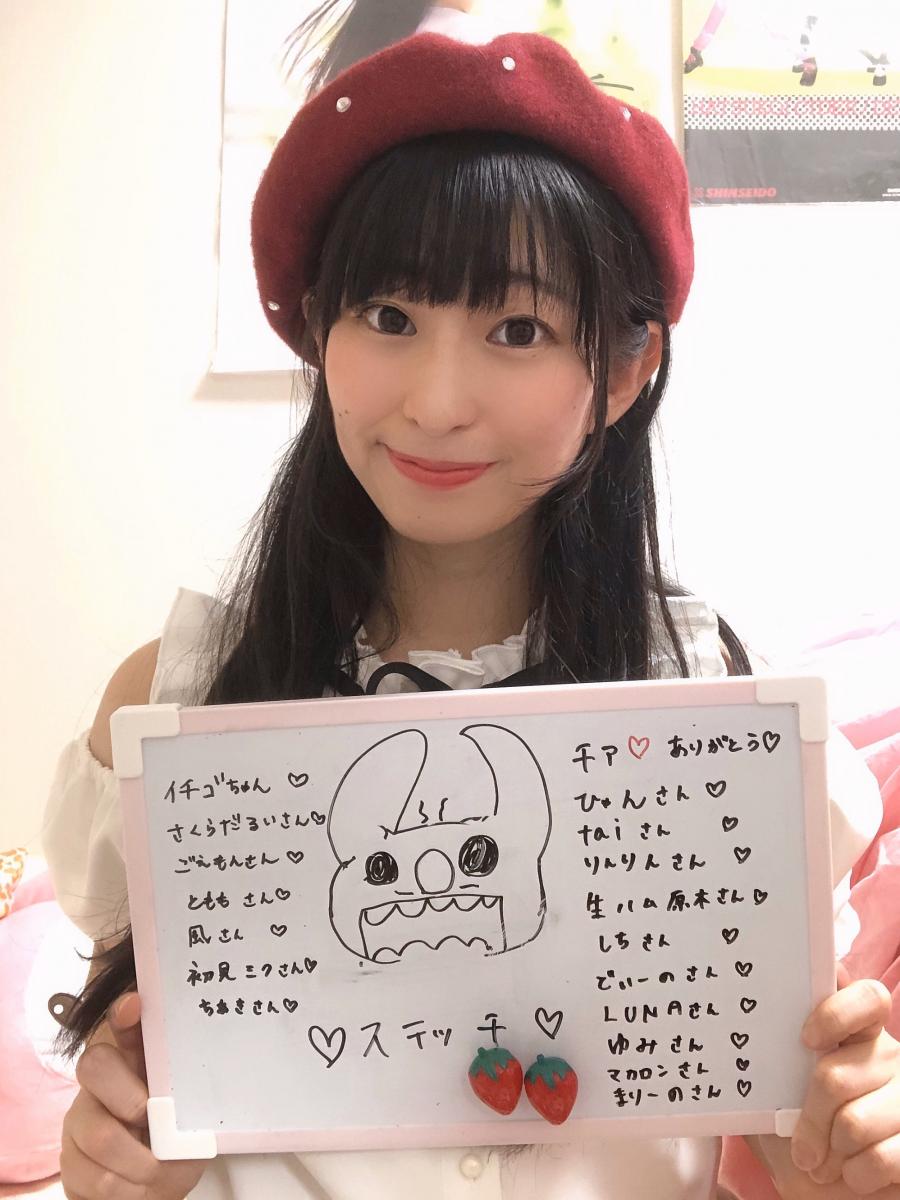 SHINSEIDO
イチゴちゃん ♡
さくらだるいさん♡
ごえもんさん ♡
ともも さん♡
風さん ♡
初見ミクさん♡
ちあきさん♡
♡ステッチ♡
チア♡ ありがとう♡
ひゅんさん ♡
taiさん ♡
りんりんさん ♡
生ハム原木さん♡
しちさん ♡
でぃーのさん ♡
LUNAさん ♡
ゆみさん ♡
マカロンさん ♡
まりーのさん ♡